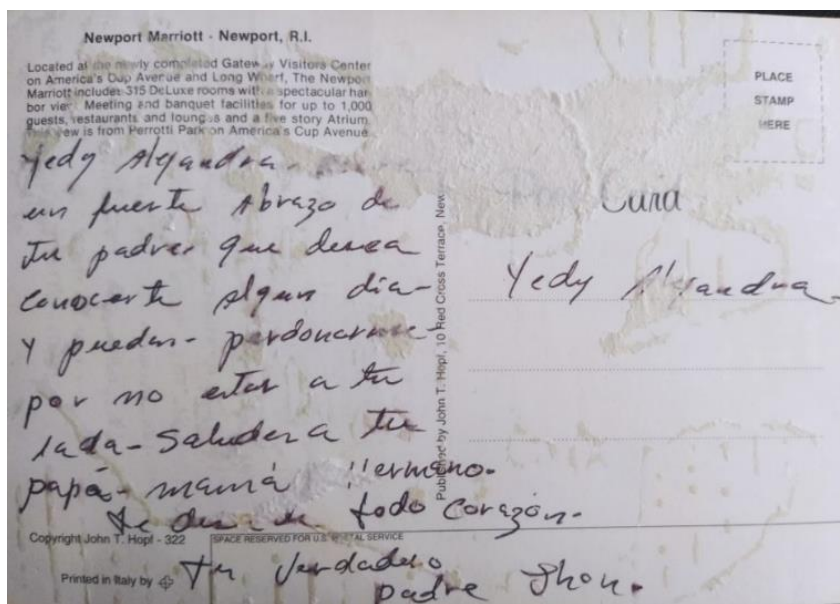 Newport Marriott - Newport, R.I.
Located at the newly completed Gateway Visitors Center
on America's Cup Avenue and Long Wharf, The Newport
Marriott includes 315 DeLuxe rooms with a spectacular har-
bor view. Meeting and banquet facilities for up to 1,000
guests, restaurants and lounges and a five story Atrium.
This view is from Perrotti Park on America's Cup Avenue
Yedy Alejandra.
un fuerte Abrazo de
tu padre que desea
conocerte algun dia-
Y puedas- perdonarme-
por no estar a tu
lada- Saludera tu
papá- mamá Hermano.
te de todo corazón.
tu Verdadero
padre Jhon.
Copyright John T. Hopf - 322
SPACE RESERVED FOR U.S. POSTAL SERVICE
Printed in Italy by
Published by John T. Hopf, 10 Red Cross Terrace, New
PLACE
STAMP
HERE
Post Card
Yedy Alejandra